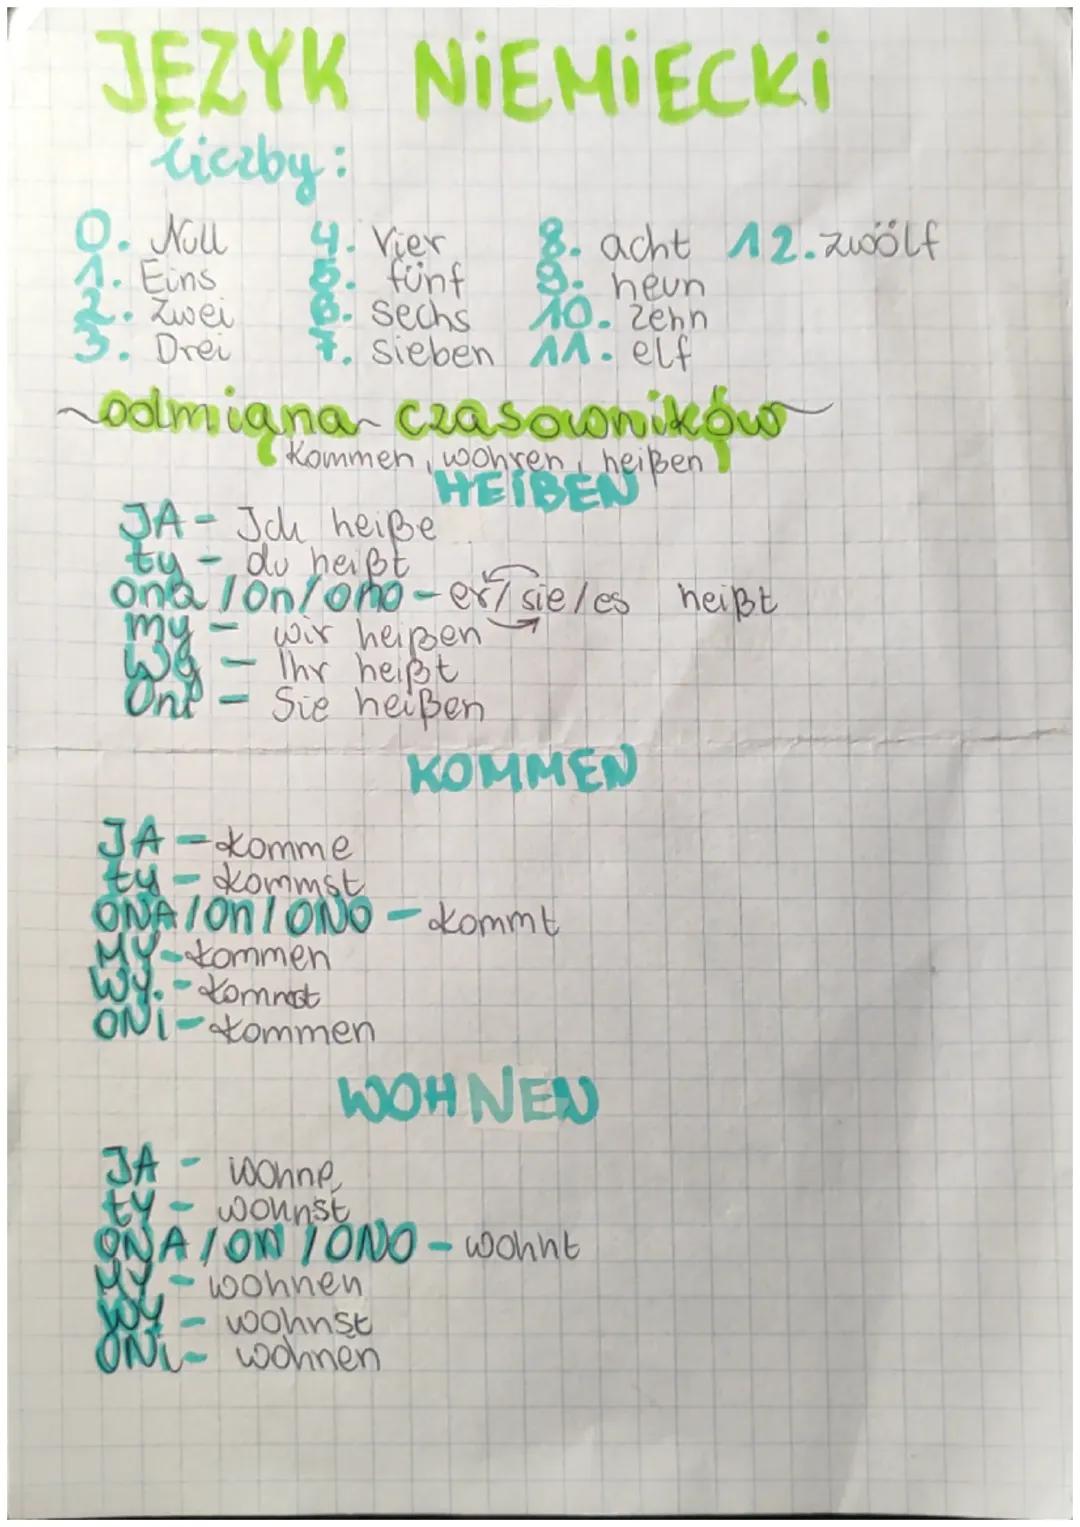 JĘZYK NiEMiECKi
liczby:
0. Null 4. Vier 8. acht 12. zwöölf
1. Eins 5. fünf 9. neun
2. Zwei 6. sechs 10. zehn
3. Drei 7. sieben 11. elf
~odmiana czasowników~
Kommen, wohnen, heißen
HEiBEN
JA - Ich heiße
ty - du heißt
ona /on/ono - er/sie/es heißt
my - wir heißen
Wy - Ihr heißt
Oni - Sie heißen
KOMMEN
JA - komme
ty - kommst
ONA/On/ONO - kommt
MY - kommen
WY. - kommst
ONi - kommen
WOHNEN
JA - wohne
tY - wohnst
ONA/ON/ONO - wohnt
MY - wohnen
WY - wohnst
ONi - wohnen